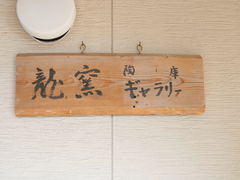 龍窯
陶庫
ギャラリァ